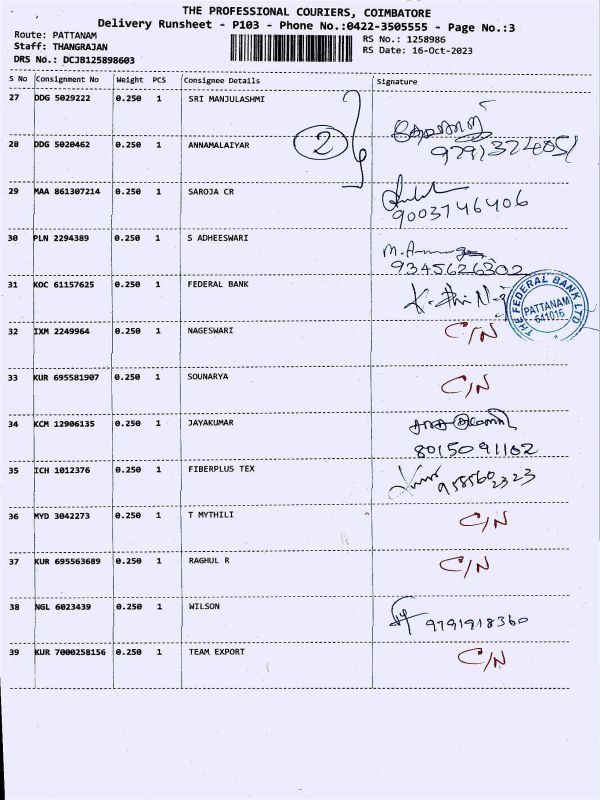 THE PROFESSIONAL COURIERS, COIMBATORE
Delivery Runsheet - P103 - Phone No.:0422-3505555 - Page No.:3
Route: PATTANAM
Staff: THANGRAJAN
DRS No.: DCJB125898603
RS No.: 1258986
RS Date: 16-Oct-2023
S No Consignment No Weight PCS Consignee Details Signature
27 DDG 5029222 0.250 1 SRI MANJULASHMI
28 DDG 5020462 0.250 1 ANNAMALAIYAR 2
29 MAA 861307214 0.250 1 SAROJA CR
9003746406
30 PLN 2294389 0.250 1 S ADHEESWARI
9345626302
31 KOC 61157625 0.250 1 FEDERAL BANK
THE FEDERAL BANK LTD
PATTANAM
641016
32 IXM 2249964 0.250 1 NAGESWARI C/N
33 KUR 695581907 0.250 1 SOUNARYA C/N
34 KCM 12906135 0.250 1 JAYAKUMAR
8015091102
35 ICH 1012376 0.250 1 FIBERPLUS TEX 9585602323
36 MYD 3042273 0.250 1 T MYTHILI C/N
37 KUR 695563689 0.250 1 RAGHUL R C/N
38 NGL 6023439 0.250 1 WILSON 9791918360
39 KUR 7000258156 0.250 1 TEAM EXPORT C/N